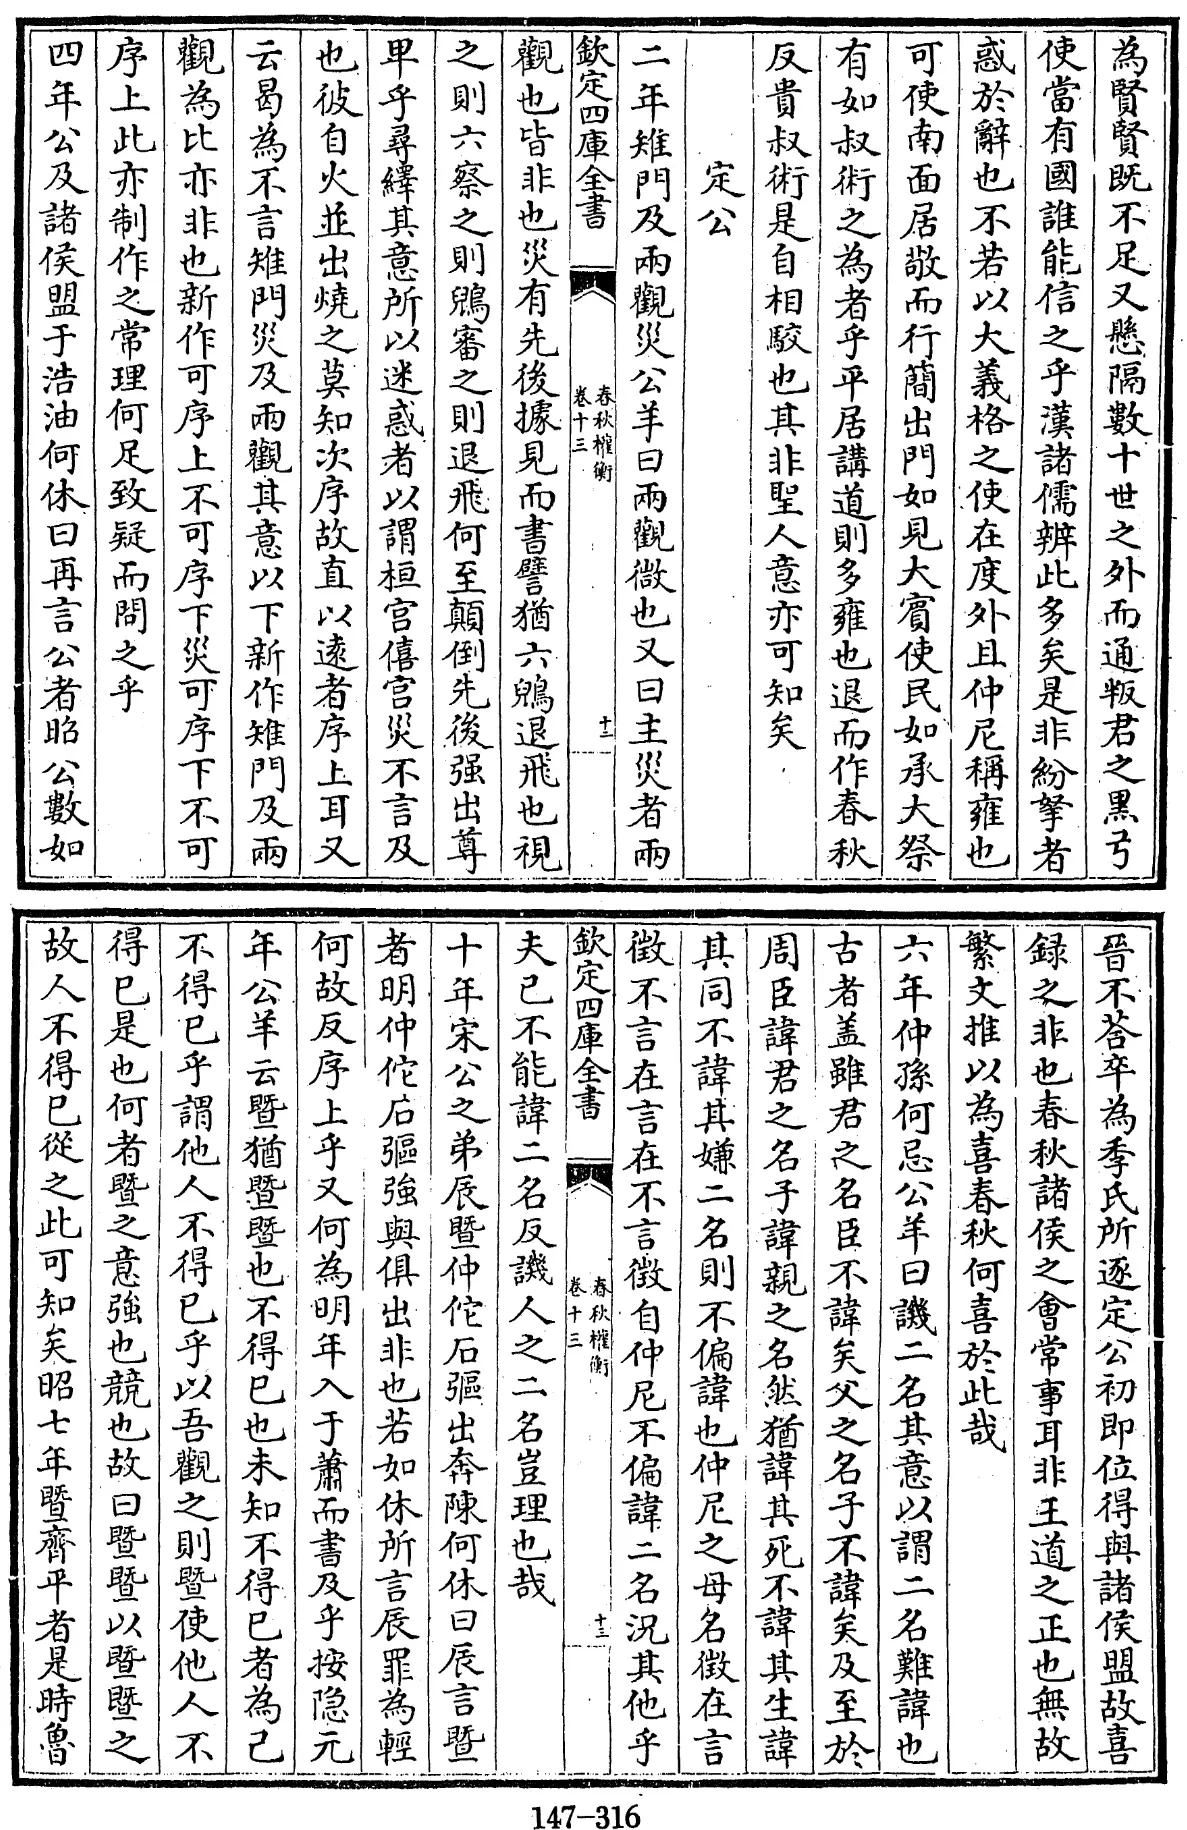 為賢賢既不足又懸隔數十世之外而通叛君之黒弓
使當有國誰能信之乎漢諸儒辨此多矣是非紛拏者
惑於辭也不若以大義格之使在度外且仲尼稱雍也
可使南面居敬而行簡出門如見大賓使民如承大祭
有如叔術之為者乎平居講道則多雍也退而作春秋
反貴叔術是自相駮也其非聖人意亦可知矣
定公
二年雉門及兩觀災公羊曰兩觀微也又曰主災者兩
欽定四庫全書
春秋權衡
卷十三
十二
觀也皆非也災有先後據見而書譬猶六鶂退飛也視
之則六察之則鶂審之則退飛何至顛倒先後强出尊
卑乎尋繹其意所以迷惑者以謂桓宫僖宫災不言及
也彼自火並出燒之莫知次序故直以逺者序上耳又
云曷為不言雉門災及兩觀其意以下新作雉門及兩
觀為比亦非也新作可序上不可序下災可序下不可
序上此亦制作之常理何足致疑而問之乎
四年公及諸侯盟于浩油何休曰再言公者昭公數如
晉不荅卒為季氏所逐定公初即位得與諸侯盟故喜
録之非也春秋諸侯之會常事耳非王道之正也無故
繁文推以為喜春秋何喜於此哉
六年仲孫何忌公羊曰譏二名其意以謂二名難諱也
古者盖雖君之名臣不諱矣父之名子不諱矣及至於
周臣諱君之名子諱親之名然猶諱其死不諱其生諱
其同不諱其嫌二名則不偏諱也仲尼之母名徴在言
徴不言在言在不言徴自仲尼不偏諱二名況其他乎
欽定四庫全書
春秋權衡
卷十三
十三
夫已不能諱二名反譏人之二名豈理也哉
十年宋公之弟辰暨仲佗石彄出奔陳何休曰辰言暨
者明仲佗石彄強與俱出非也若如休所言辰罪為輕
何故反序上乎又何為明年入于蕭而書及乎按隐元
年公羊云暨猶暨暨也不得已也未知不得已者為己
不得已乎謂他人不得已乎以吾觀之則暨使他人不
得已是也何者暨之意強也競也故曰暨暨以暨暨之
故人不得已從之此可知矣昭七年暨齊平者是時魯
147-316